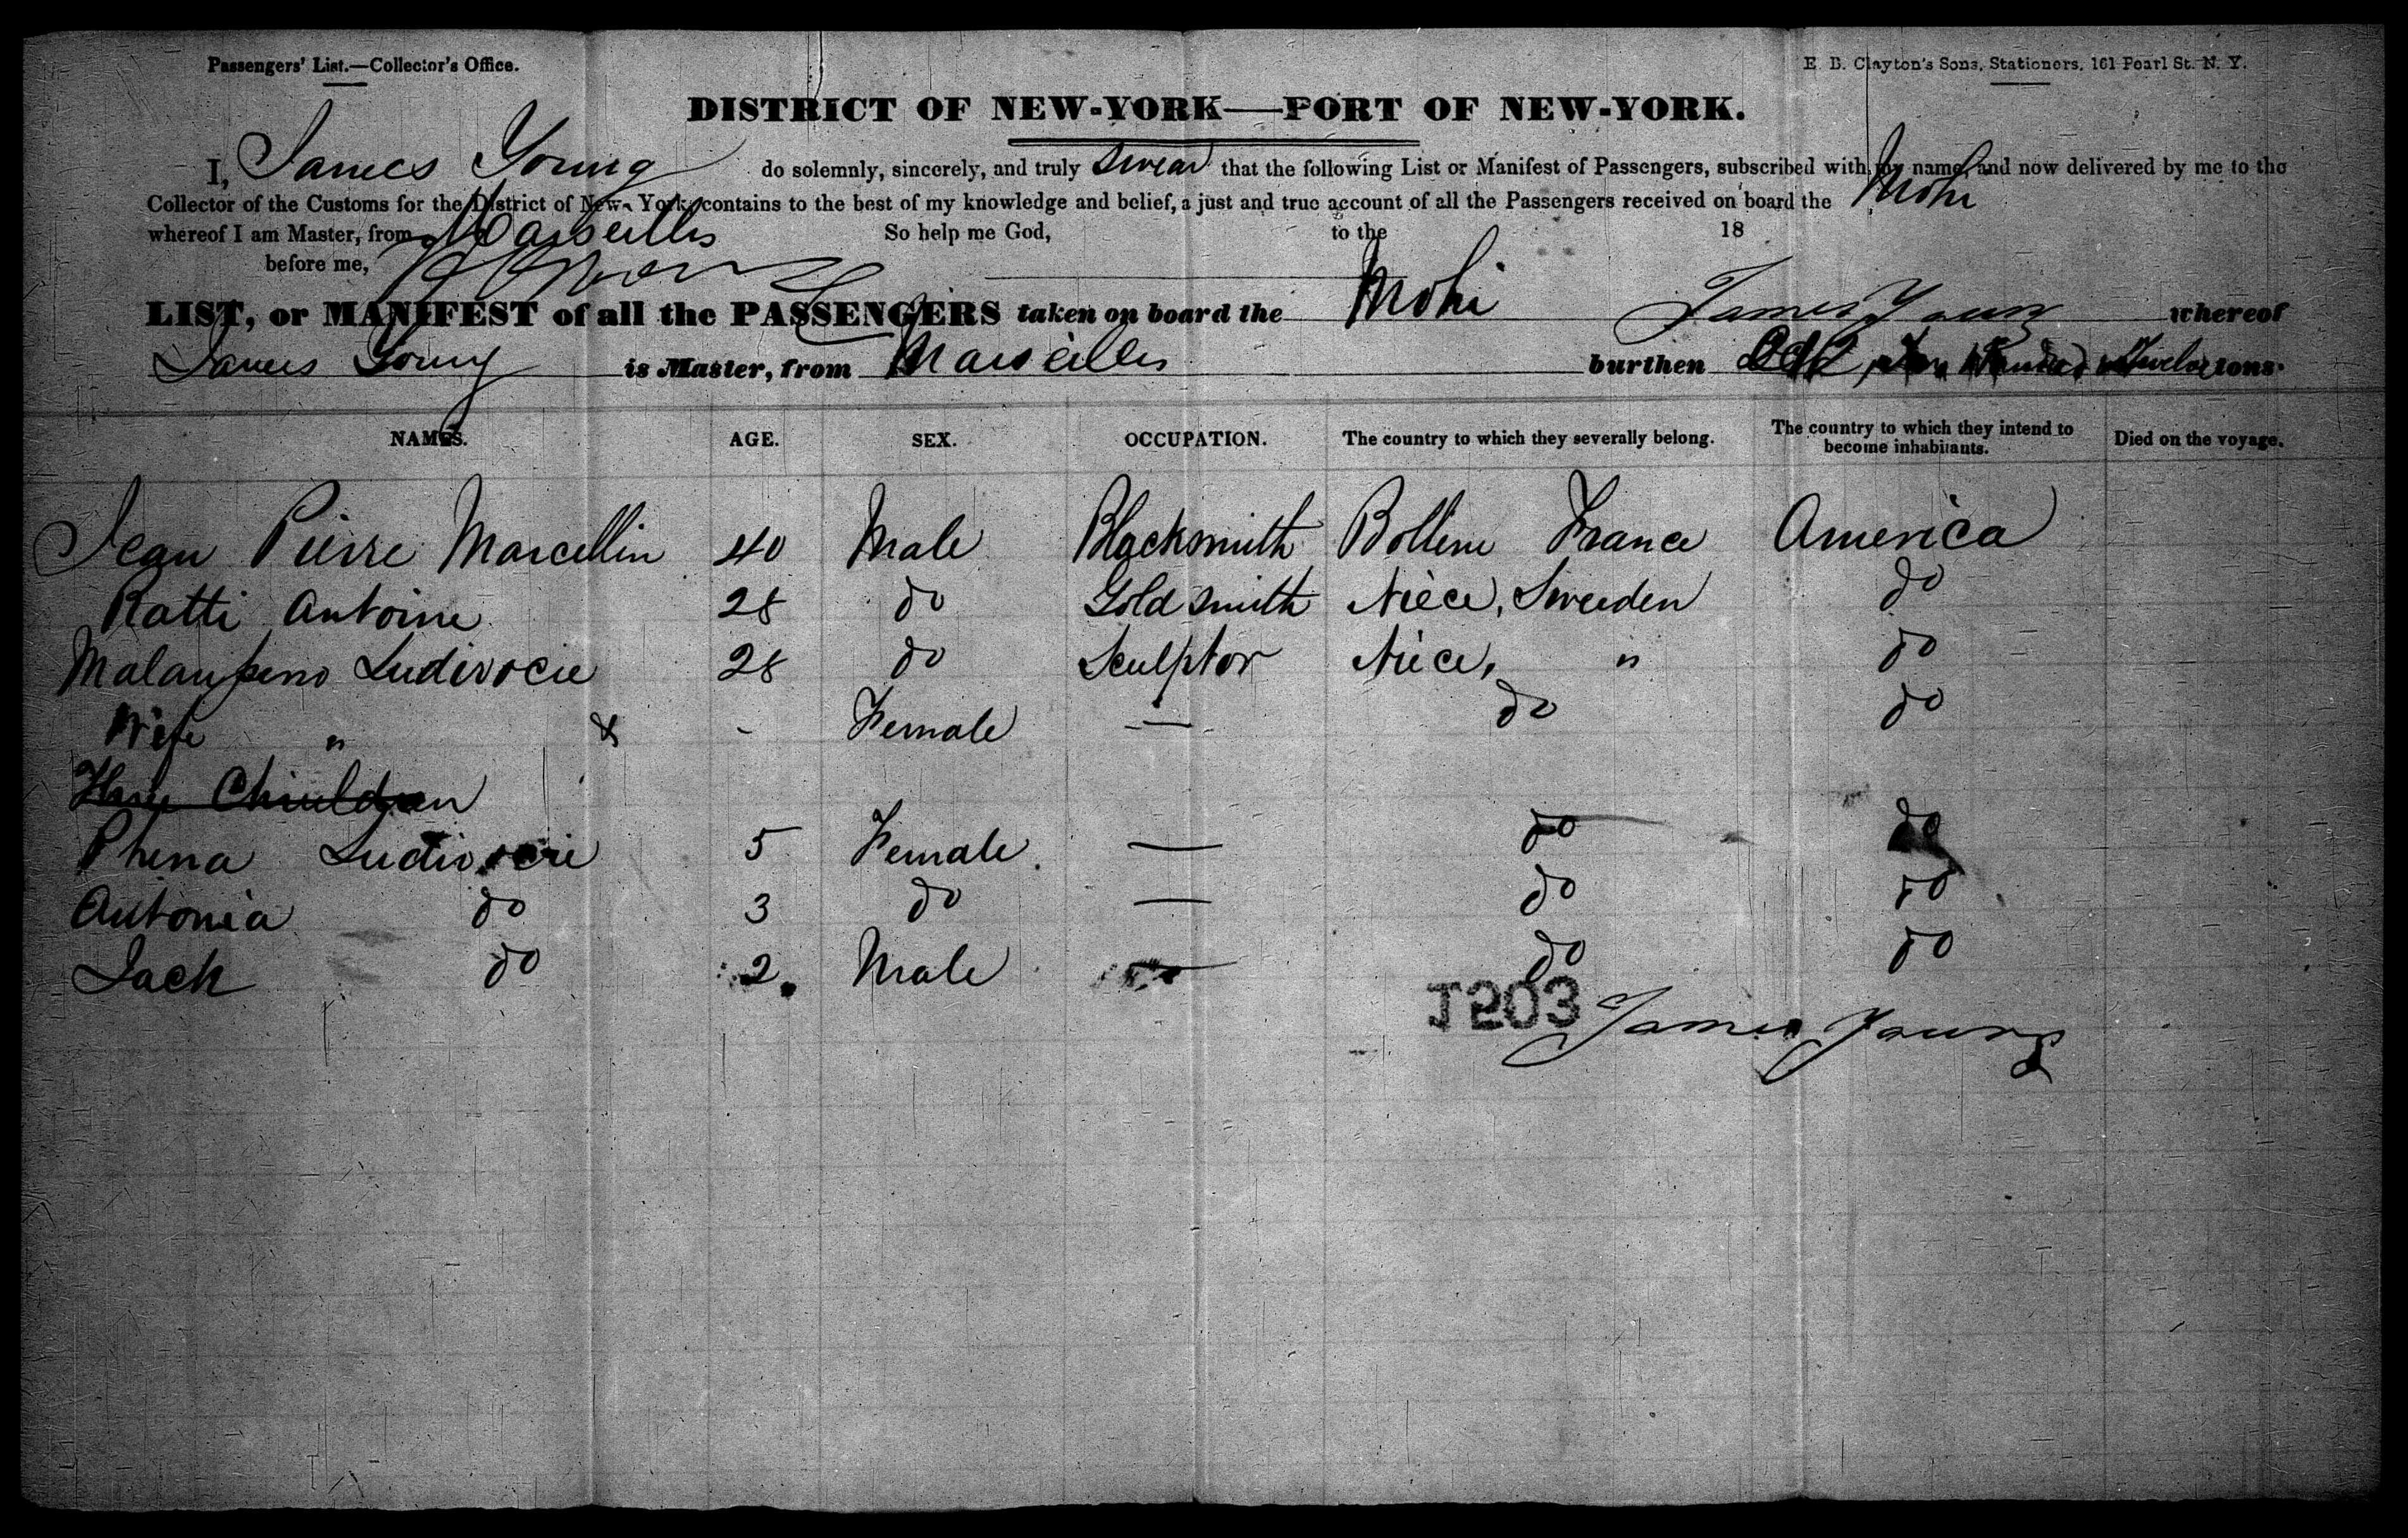 Passengers' List.—Collector's Office.
E. B. Clayton's Sons, Stationers, 161 Pearl St. N. Y.
DISTRICT OF NEW-YORK—PORT OF NEW-YORK.
I, James Young do solemnly, sincerely, and truly swear that the following List or Manifest of Passengers, subscribed with my name, and now delivered by me to the
Collector of the Customs for the District of New-York, contains to the best of my knowledge and belief, a just and true account of all the Passengers received on board the Mohi
whereof I am Master, from Marseilles So help me God, to the 18
before me,
LIST, or MANIFEST of all the PASSENGERS taken on board the Mohi James Young whereof
James Young is Master, from Marseilles burthen tons.
NAMES. AGE. SEX. OCCUPATION. The country to which they severally belong. The country to which they intend to become inhabitants. Died on the voyage.
Jean Pierre Marcellin 40 Male Blacksmith Bollene France America
Ratti Antoine 28 do Goldsmith Niece, Sweden do
Malaupino Ludivocie 28 do Sculptor Niece, " do
Wife " & - Female — do do
Three Chiuldren
Phena Ludivocie 5 Female — do do
Antonia do 3 do — do do
Jack do 2. Male — do do
J203 James Young